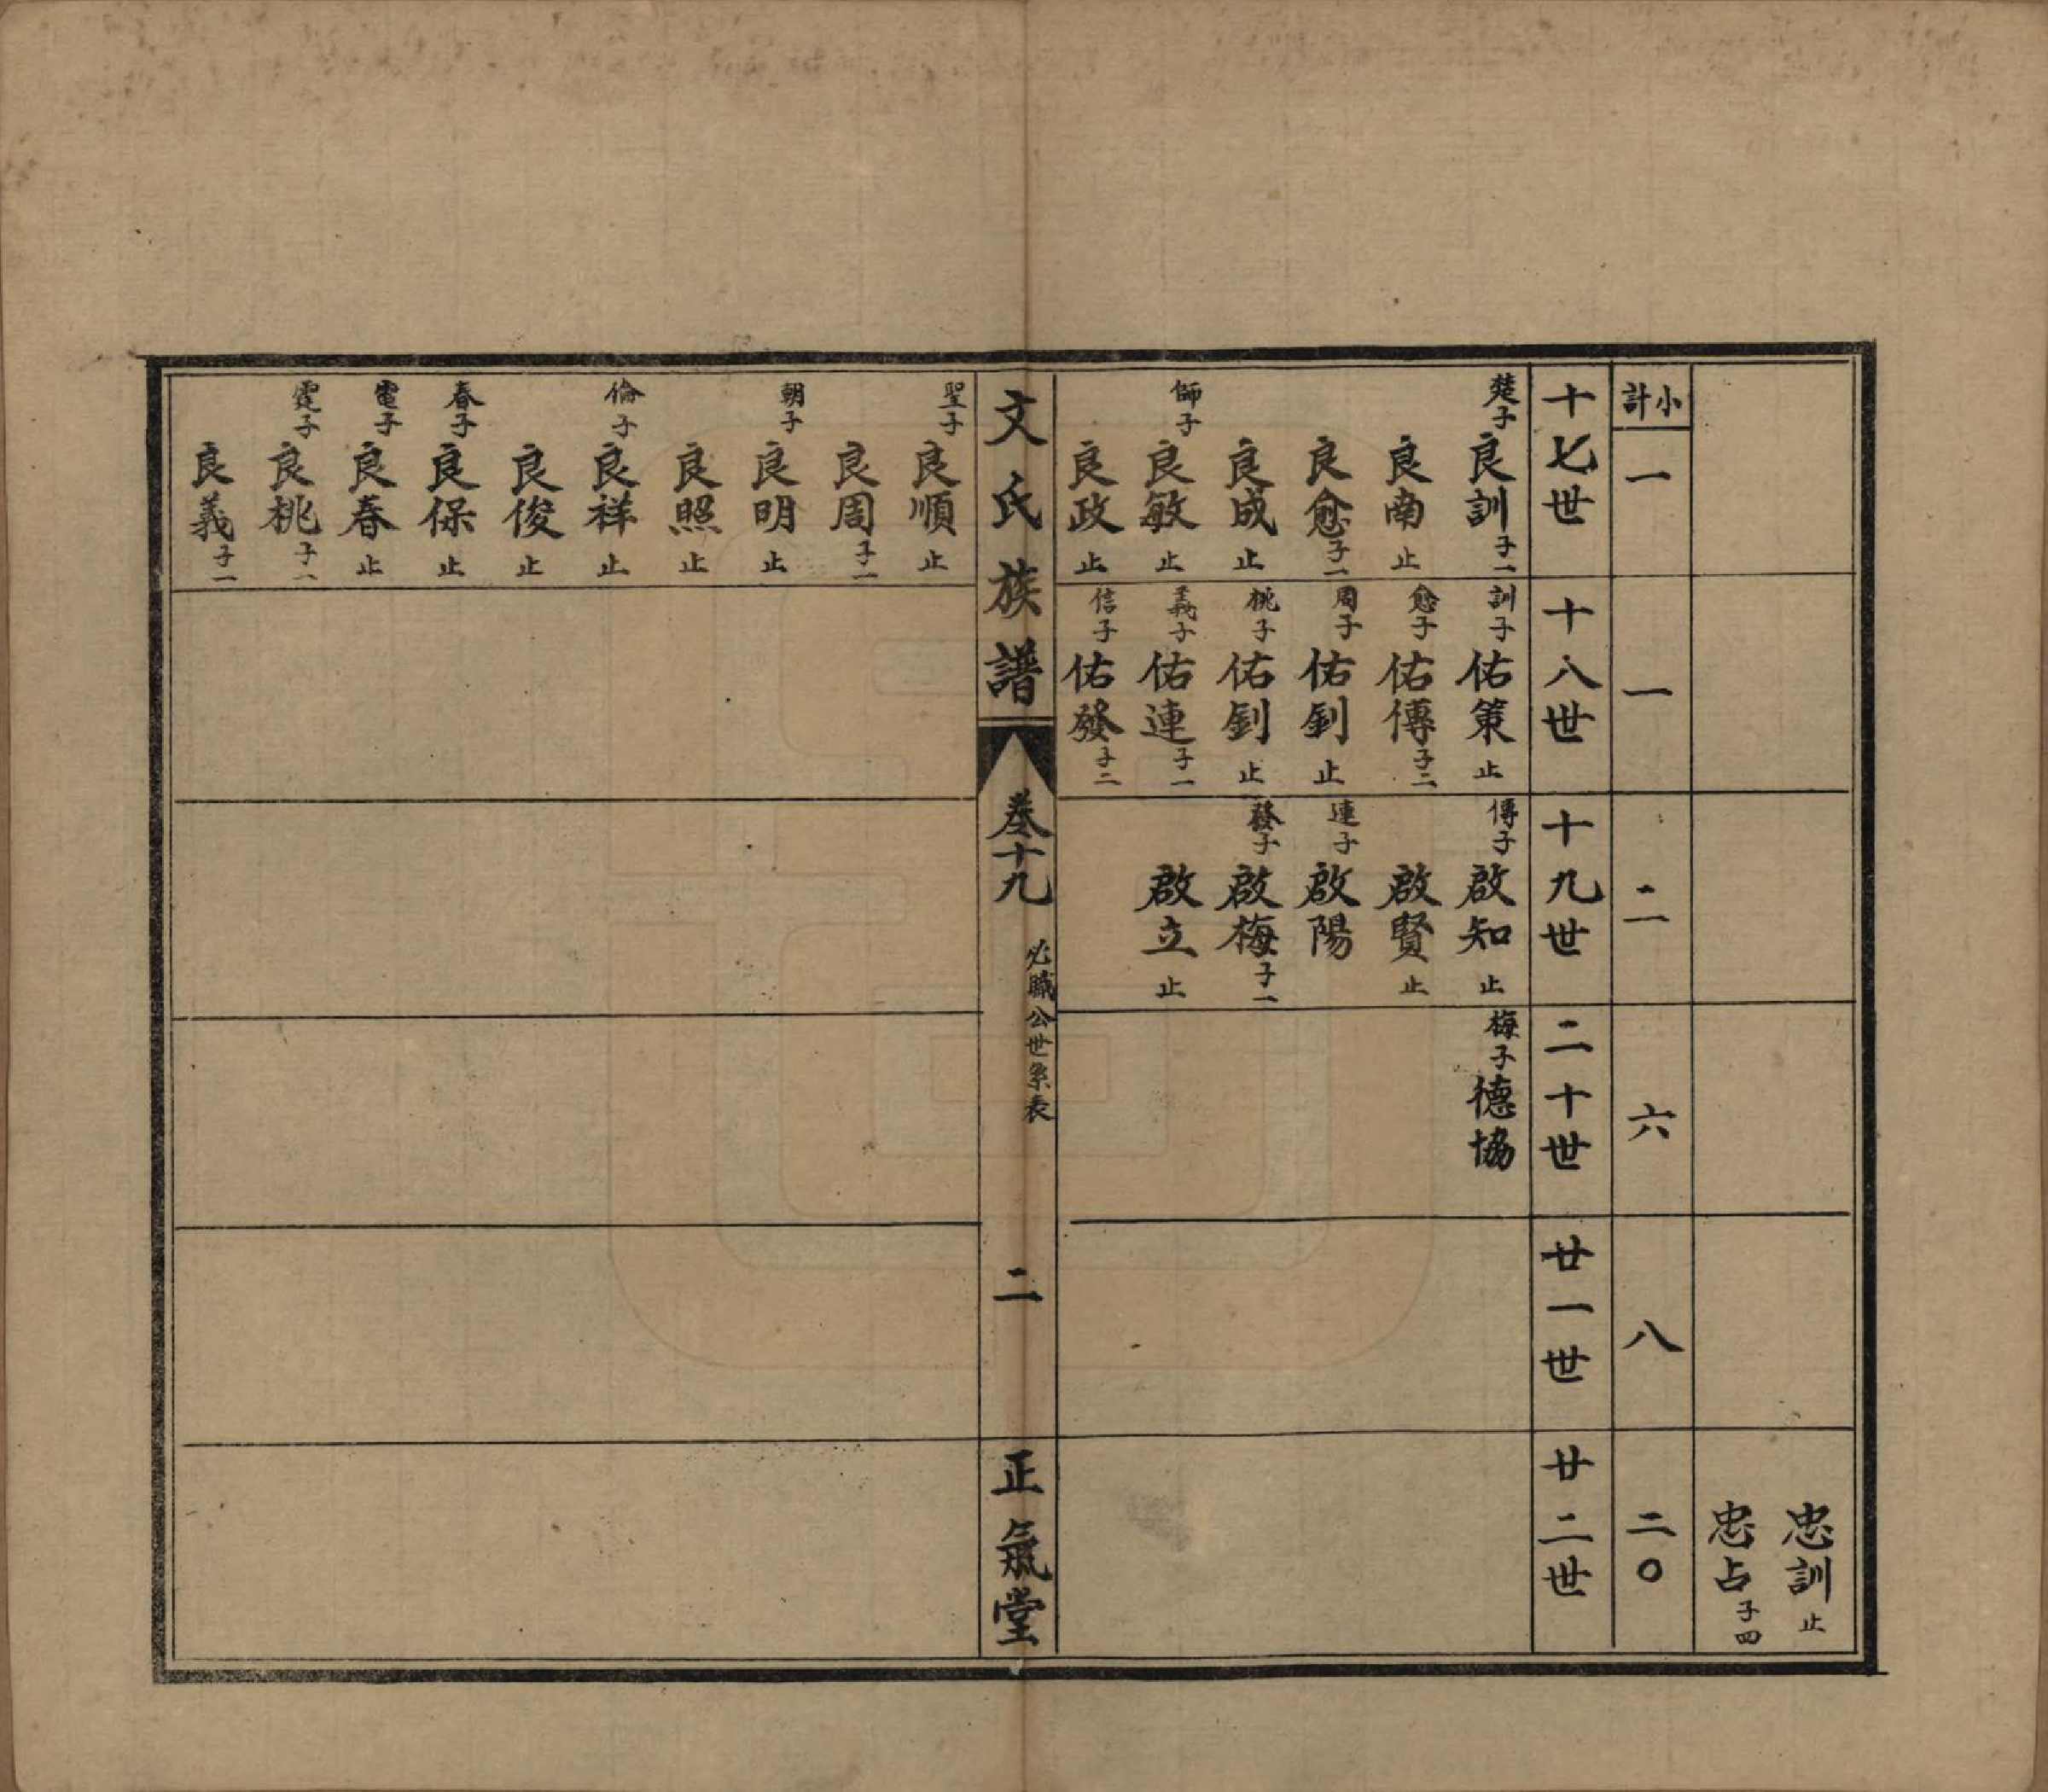 忠訓止
忠占子四
小計 一 一 二 六 八 二〇
十七世
楚子良訓子一
良南止
良愈子一
良成止
師子良敏止
良政止
十八世
訓子佑策止
愈子佑傳子二
周子佑釗止
桃子佑釗止
義子佑連子一
信子佑發子二
十九世
傳子啟知止
啟賢止
連子啟陽
發子啟梅子一
啟立止
二十世
梅子德協
廿一世
廿二世
文氏族譜 卷十九 必職公世系表 二 正氣堂
聖子良順止
良周子一
朝子良明止
良照止
倫子良祥止
良俊止
春子良保止
電子良春止
霆子良桃子一
良義子一